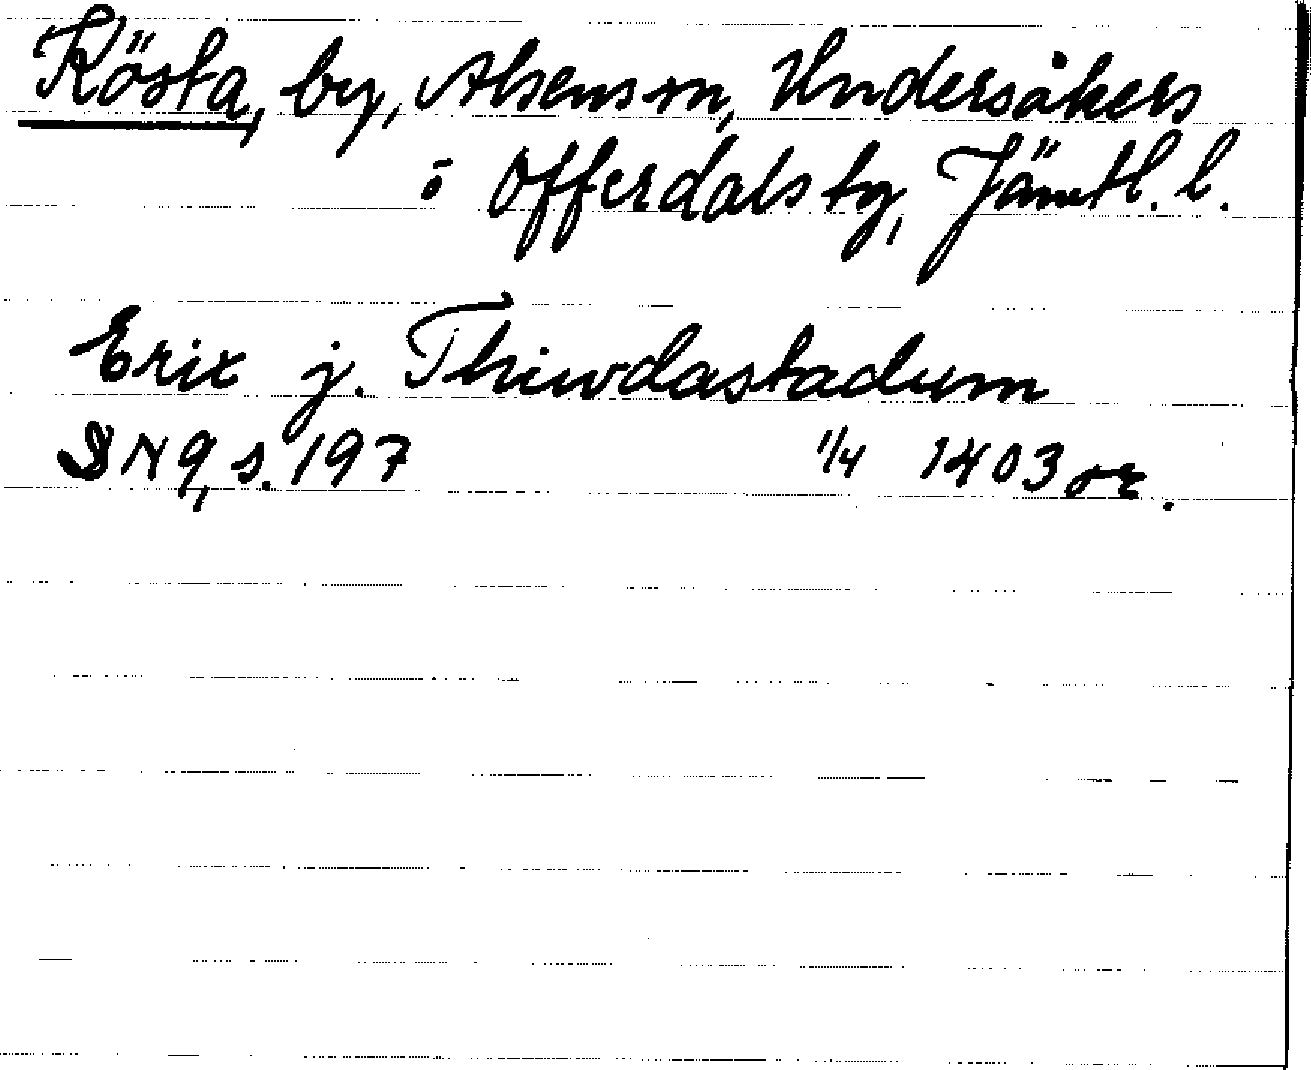 Kösta, by, Alsens sn, Undersåkers
o Offerdals tg, Jämtl. l.
Erix j. Thiwdastadum
SN 9, s. 197 1/4 1403 or.